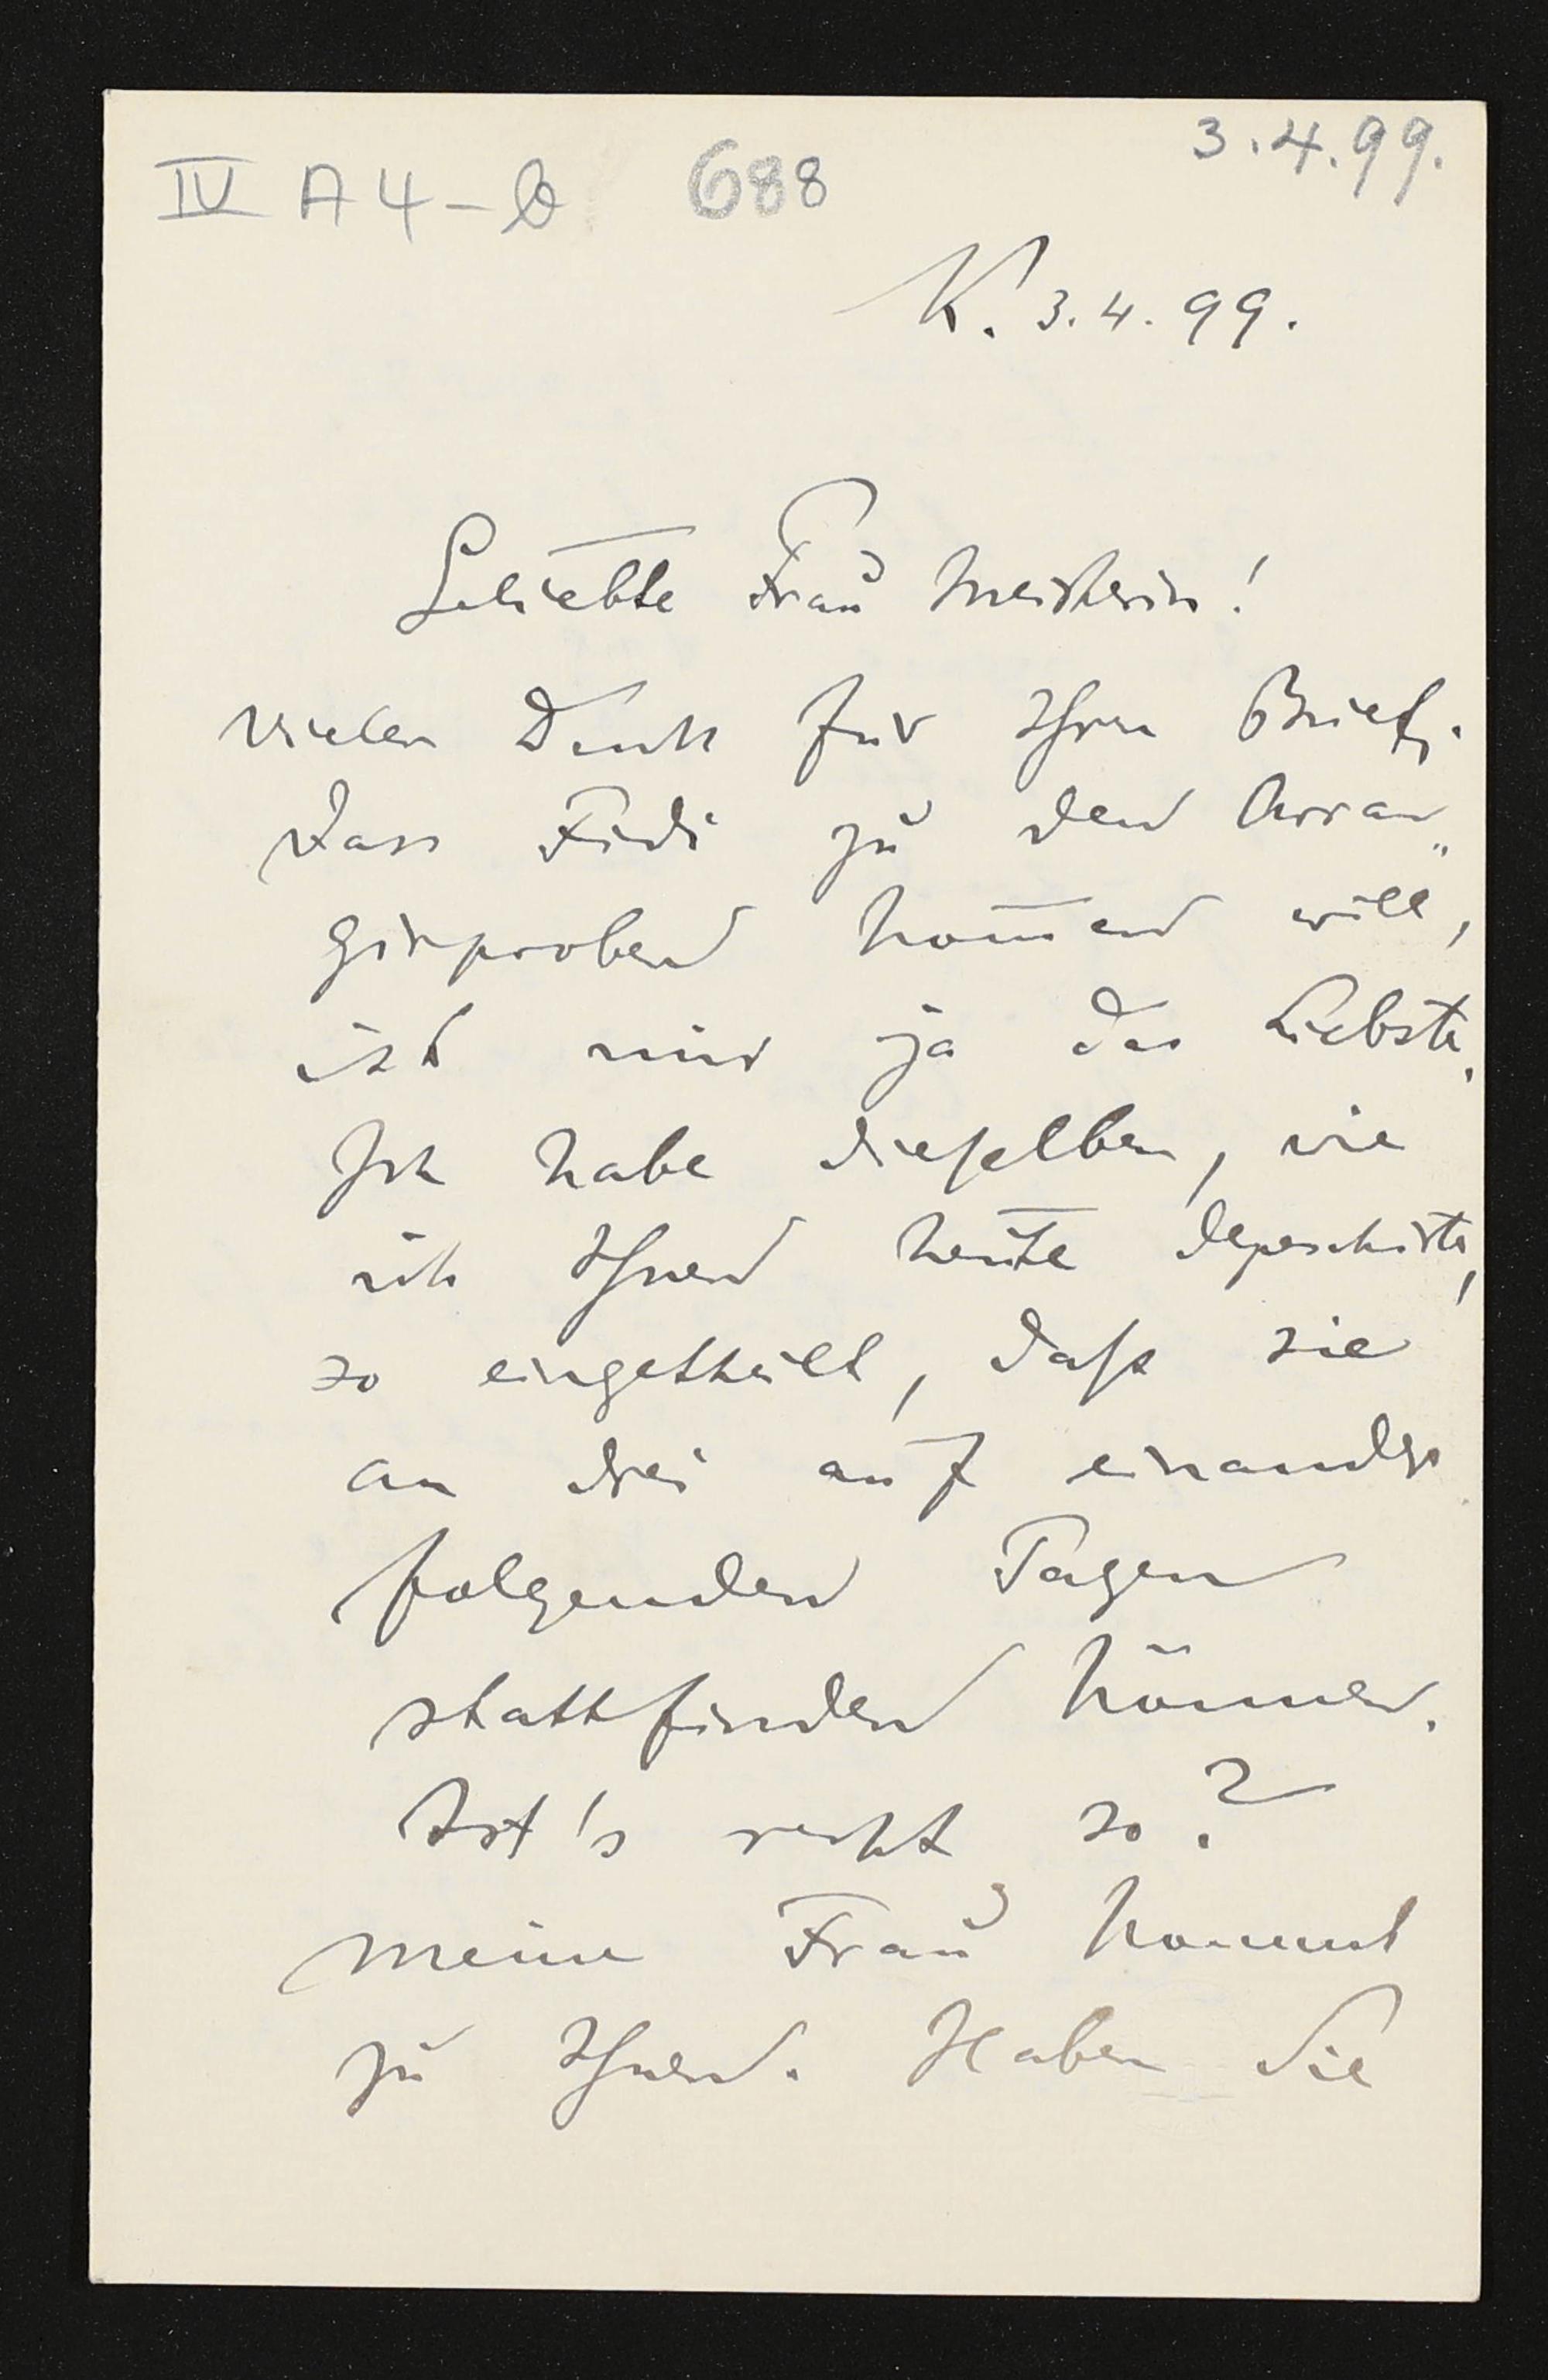 3.4.99.
IV A 4-b 688
K. 3.4.99.
Geliebte Frau Meisterin!
vielen Dank für Ihren Brief.
Dass Fidi zu den Arran„
girproben kom̅en will,
ist mir ja das Liebste.
Ich habe dieſelben, wie
ich Ihnen heute depeschirte,
so eingetheilt, daſs sie
an drei auf einander
folgenden Tagen
stattfinden können.
Ist's recht so?
Meine Frau kommt
zu Ihnen. Haben Sie